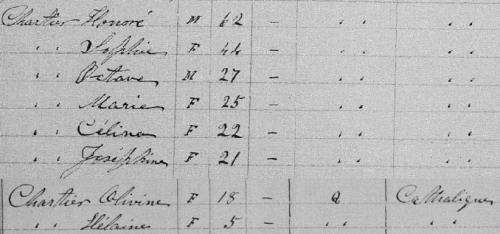 Chartier Honoré M 62 – " "
" " Sophie F 44 – " " " "
" " Octave M 27 – " " " "
" " Marie F 25 – " " " "
" " Célina F 22 – " " " "
" " Joséphine F 21 – " " " "
Chartier Olivine F 18 – Q Catholique
" " Hélaine F 5 – " " " "